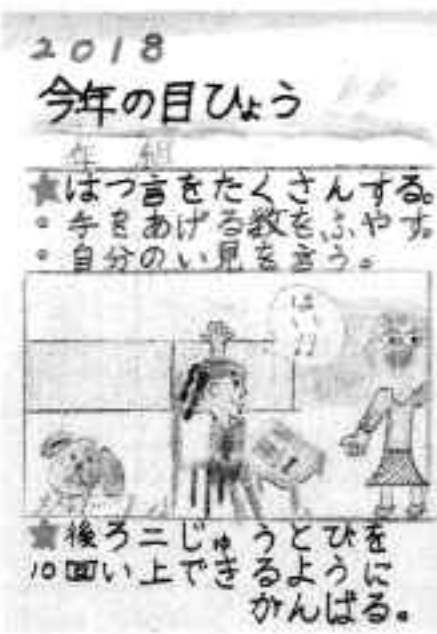 2018
今年の目ひょう
年 組
★はつ言をたくさんする。
・手をあげる数をふやす。
・自分のい見を言う。
はい!!
★後ろ二じゅうとびを
10回い上できるように
がんばる。